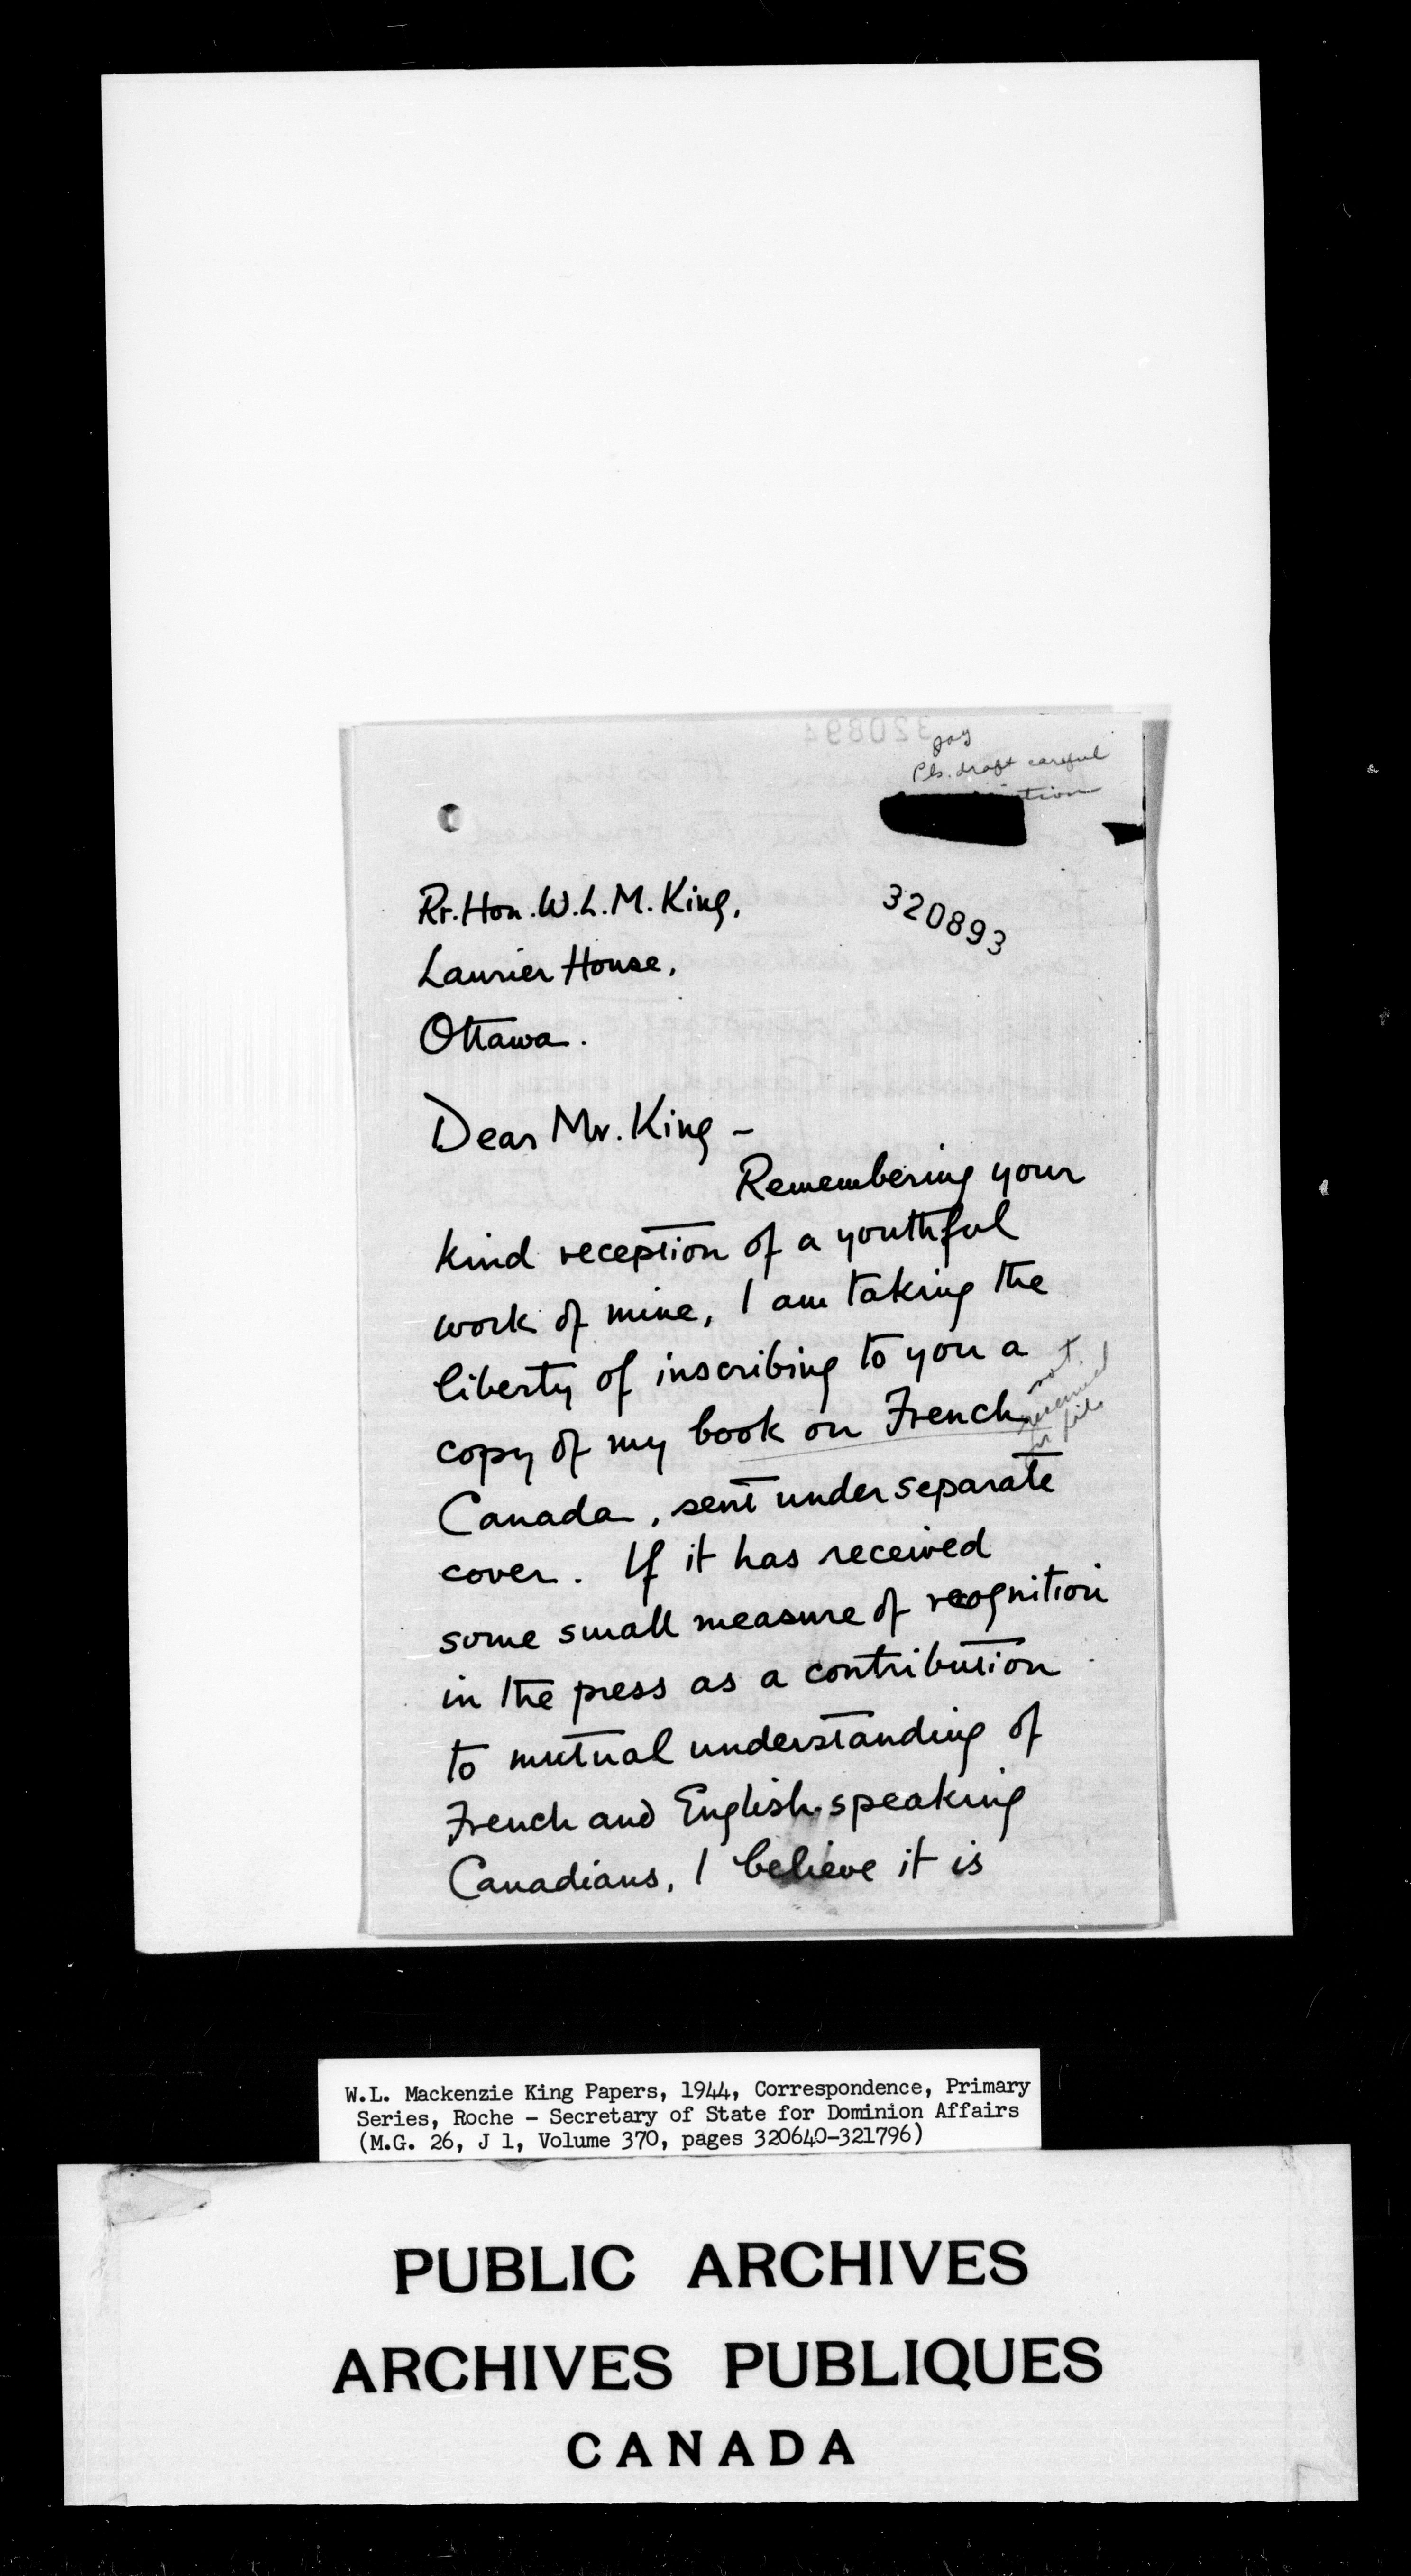 Pls. draft careful
320893
Rt. Hon. W.L.M. King,
Laurier House,
Ottawa.
Dear Mr. King –
Remembering your
kind reception of a youthful
work of mine, I am taking the
liberty of inscribing to you a
copy of my book on French
not
received
for file
Canada, sent under separate
cover. If it has received
some small measure of recognition
in the press as a contribution
to mutual understanding of
French and English-speaking
Canadians, I believe it is
W.L. Mackenzie King Papers, 1944, Correspondence, Primary
Series, Roche - Secretary of State for Dominion Affairs
(M.G. 26, J 1, Volume 370, pages 320640-321796)
PUBLIC ARCHIVES
ARCHIVES PUBLIQUES
CANADA